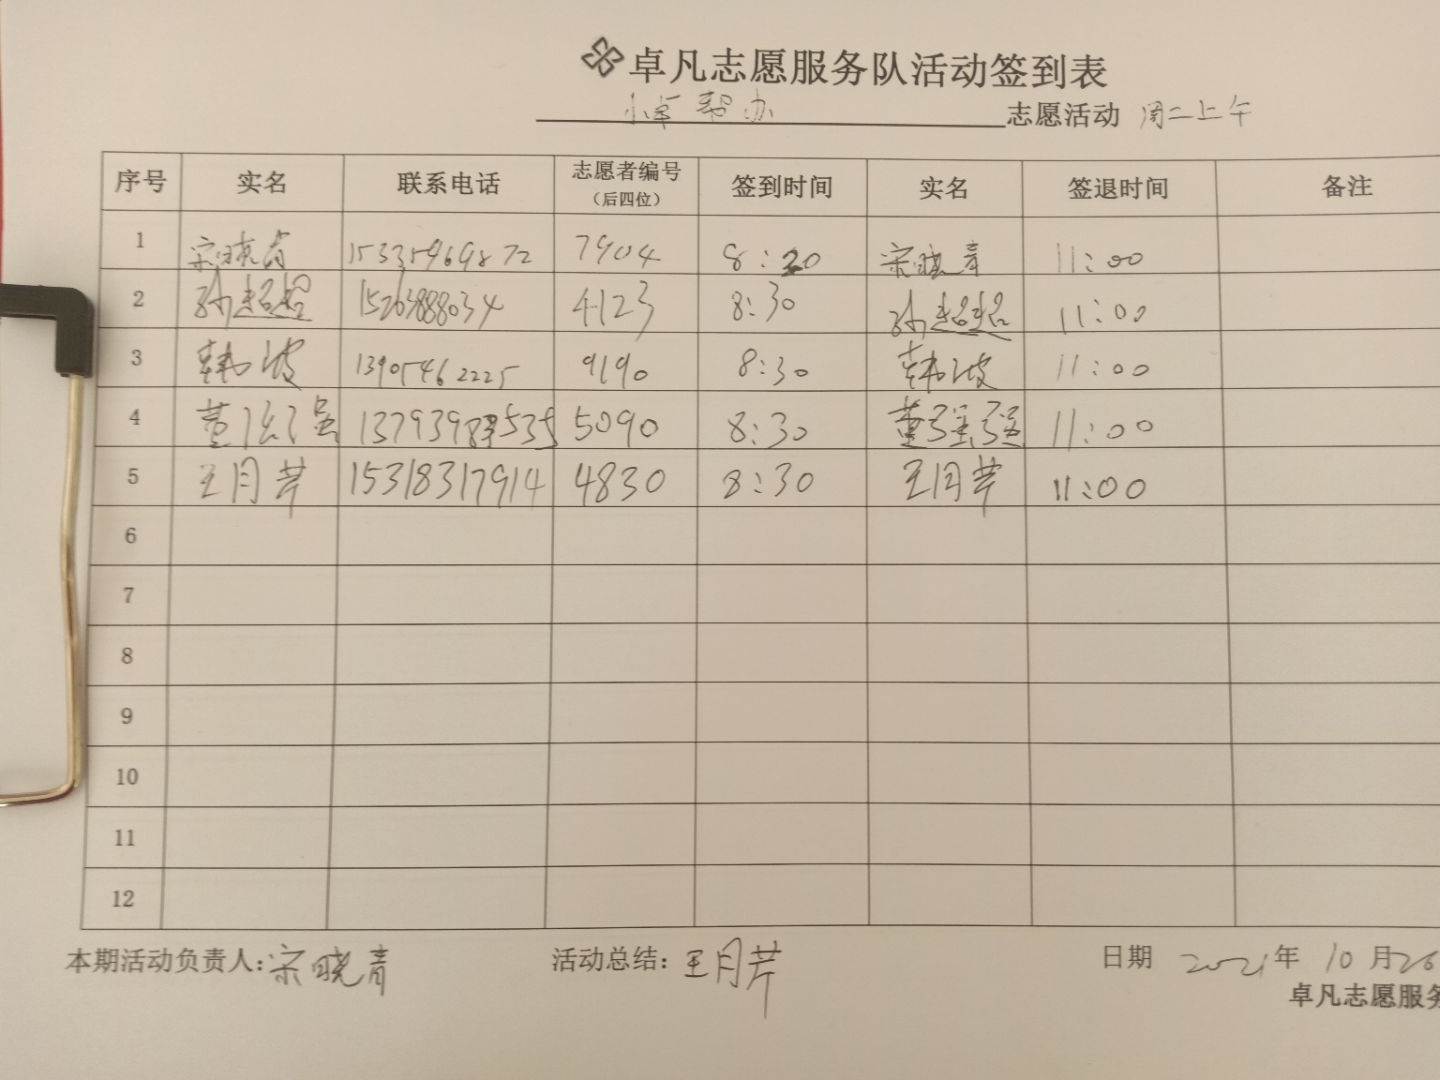 卓凡志愿服务队活动签到表
小卓帮办 志愿活动 周二上午
序号 实名 联系电话 志愿者编号（后四位） 签到时间 实名 签退时间 备注
1 宋晓青 15335969872 7904 8:20 宋晓青 11:00
2 孙超超 15263888034 4123 8:30 孙超超 11:00
3 韩波 13905462225 9190 8:30 韩波 11:00
4 董强强 5090 8:30 董强强 11:00
5 王月芹 15318317914 4830 8:30 王月芹 11:00
6
7
8
9
10
11
12
本期活动负责人：宋晓青 活动总结：王月芹 日期 2021年 10月26
卓凡志愿服务